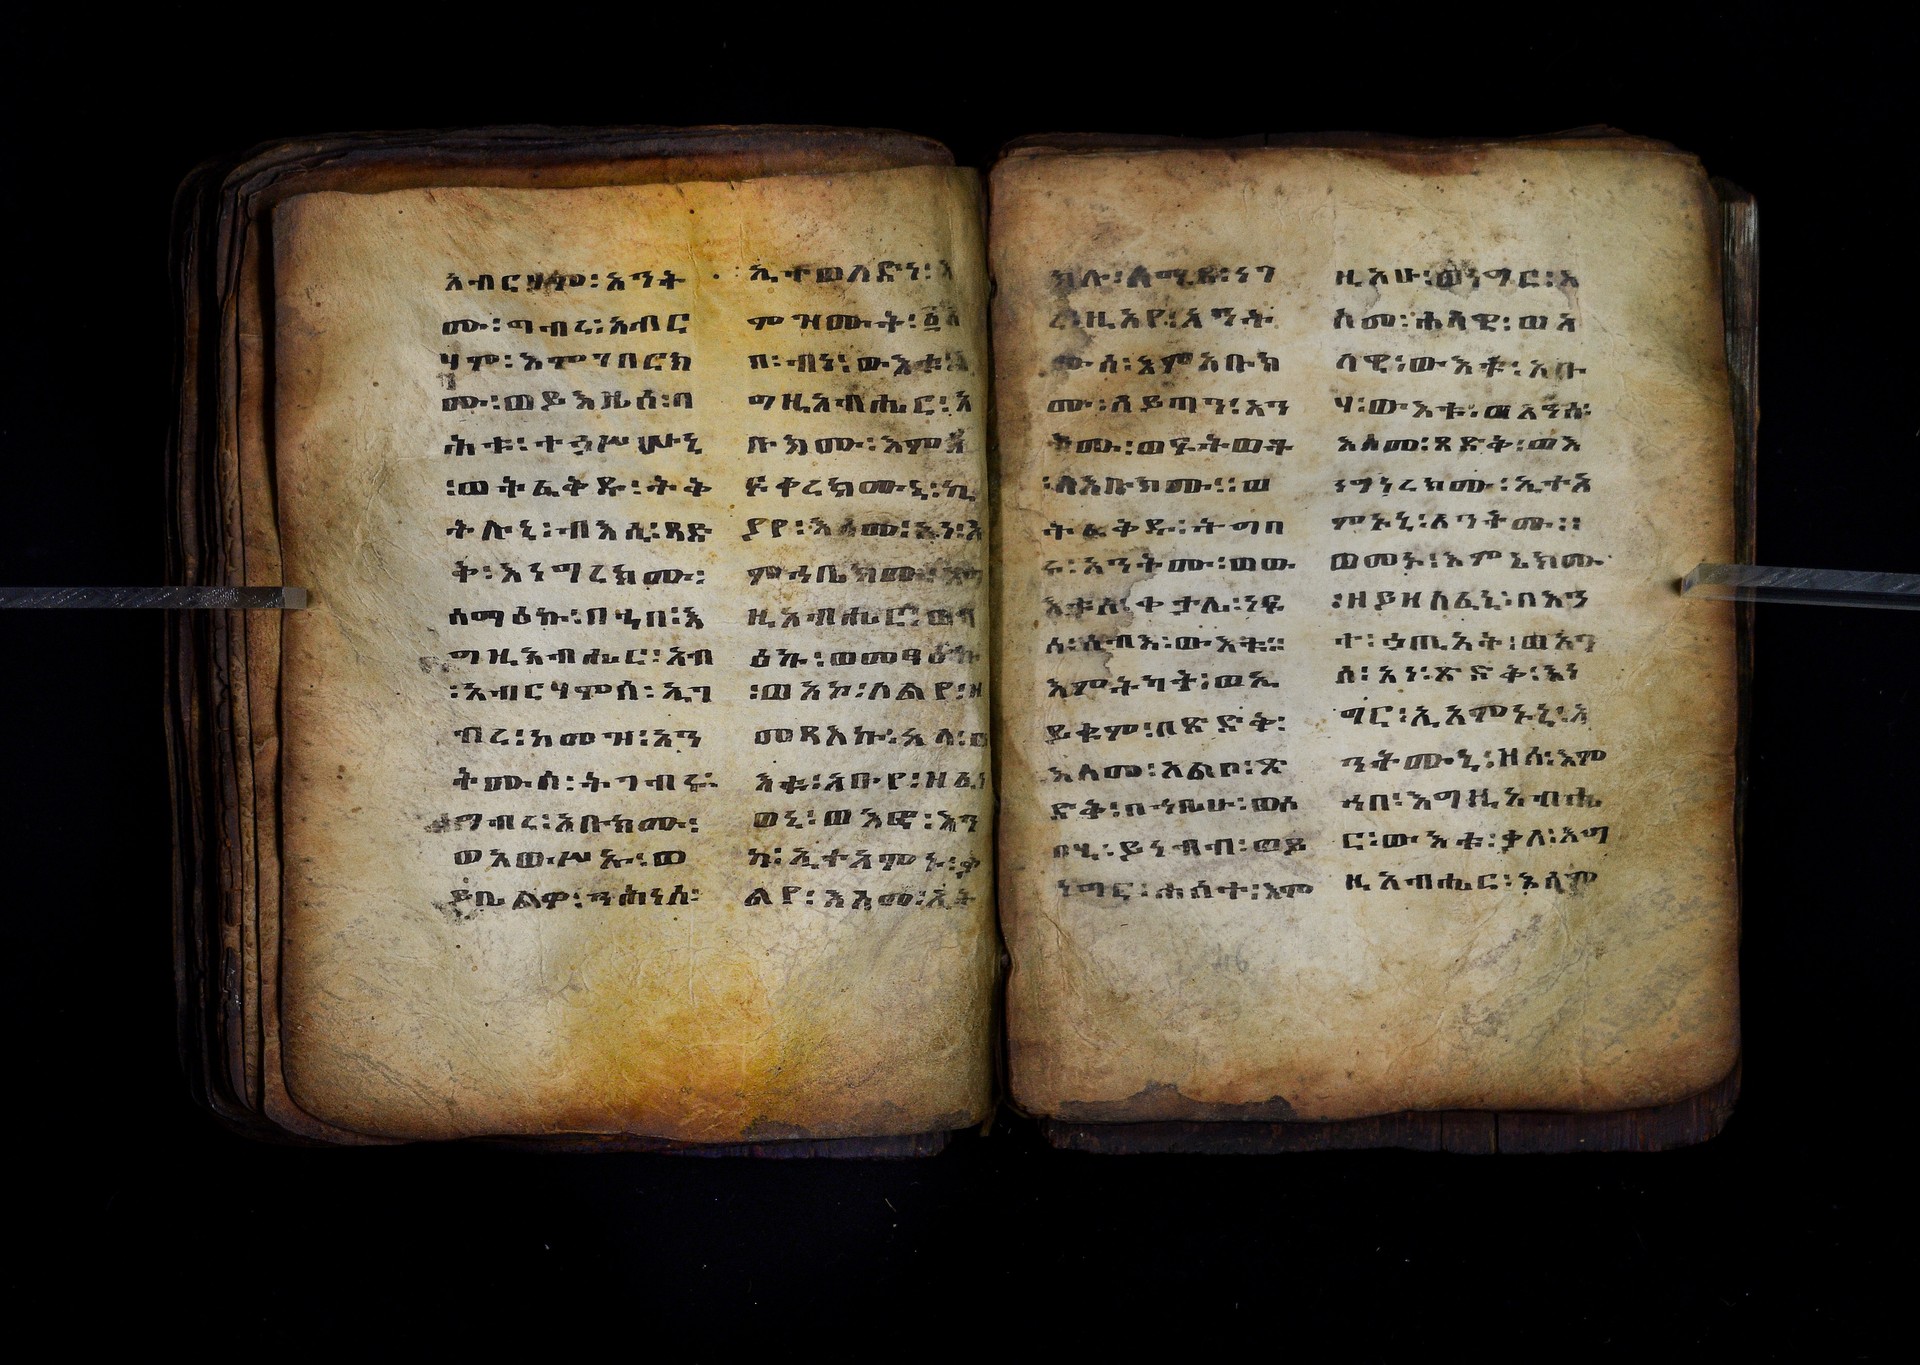 አብርሃም፡አንት
ሙ፡ግብረ፡አብር
ሃም፡እምገበርክ
ሙ፡ወይእዜሰ፡ባ
ሕቱ፡ተኃሥሡኒ
፡ወትፈቅዱ፡ትቅ
ትሉኒ፡ብእሲ፡ጻድ
ቅ፡እነግረክሙ፡
ሰማዕኩ፡በኀበ፡እ
ግዚአብሔር፡አብ
፡አብርሃምሰ፡ኢገ
ብረ፡ከመዝ፡አን
ትሙሰ፡ትገብሩ፡
ግብረ፡አቡክሙ፡
ወአውሥኡ፡ወ
ይቤልዎ፡ንሕነሰ፡
ኢተወለድነ፡
ምዝሙት፡፩
ቡ፡ብነ፡ውእቱ፡
ግዚአብሔር፡አ
ቡክሙ፡እም
ፍቀረክሙኒ፡ኪ
ያየ፡እስመ፡አነ፡
ምኀቤክሙ፡
ዚአብሔር፡
ዕኩ፡ወመፃዕኩ
፡ወአኮ፡ለልየ፡ዘ
መጻእኩ፡አላ፡
እቱ፡አቡየ፡ዘፈነ
ወኒ፡ወእፎ፡እን
ከ፡ኢተአምኑ፡ቃ
ልየ፡እስመ፡ኢት
ክሉ፡ሰሚዐ፡ነገ
ረ፡ዚአየ፡አንት
ሙሰ፡እምአቡክ
ሙ፡ሰይጣን፡አን
ትሙ፡ወፍትወት
፡ለአቡክሙ፡፡ወ
ትፈቅዱ፡ትግበ
ሩ፡አንትሙ፡ወው
እቱሰ፡ቀታሌ፡ነፍ
ሰ፡ሰብእ፡ውእቱ፡፡
እምትካት፡ወኢ
ይቁም፡በጽድቅ፡
እስመ፡አልቦ፡ጽ
ድቅ፡በኀቤሁ፡ወሶ
በሂ፡ይነብብ፡ወይ
ነግር፡ሐሰተ፡እም
ዚአሁ፡ወነግር፡እ
ስመ፡ሐሳዊ፡ወአ
ሳዊ፡ውእቱ፡አቡ
ሃ፡ውእቱ፡ወአንሰ
እስመ፡ጻድቅ፡ወእ
ነግነረክሙ፡ኢተአ
ምኑኒ፡ለንትሙ፡፡
ወመኑ፡እምኔክሙ
፡ዘይዛለፈኒ፡በእን
ተ፡ኃጢአት፡ወእን
ሰ፡አነ፡ጽድቅ፡እነ
ግር፡ኢአምኑኒ፡አ
ንትሙኒ፡ዘሰ፡እም
ኀበ፡እግዚአብሔ
ር፡ውእቱ፡ቃለ፡እግ
ዚአብሔር፡ኢሰም